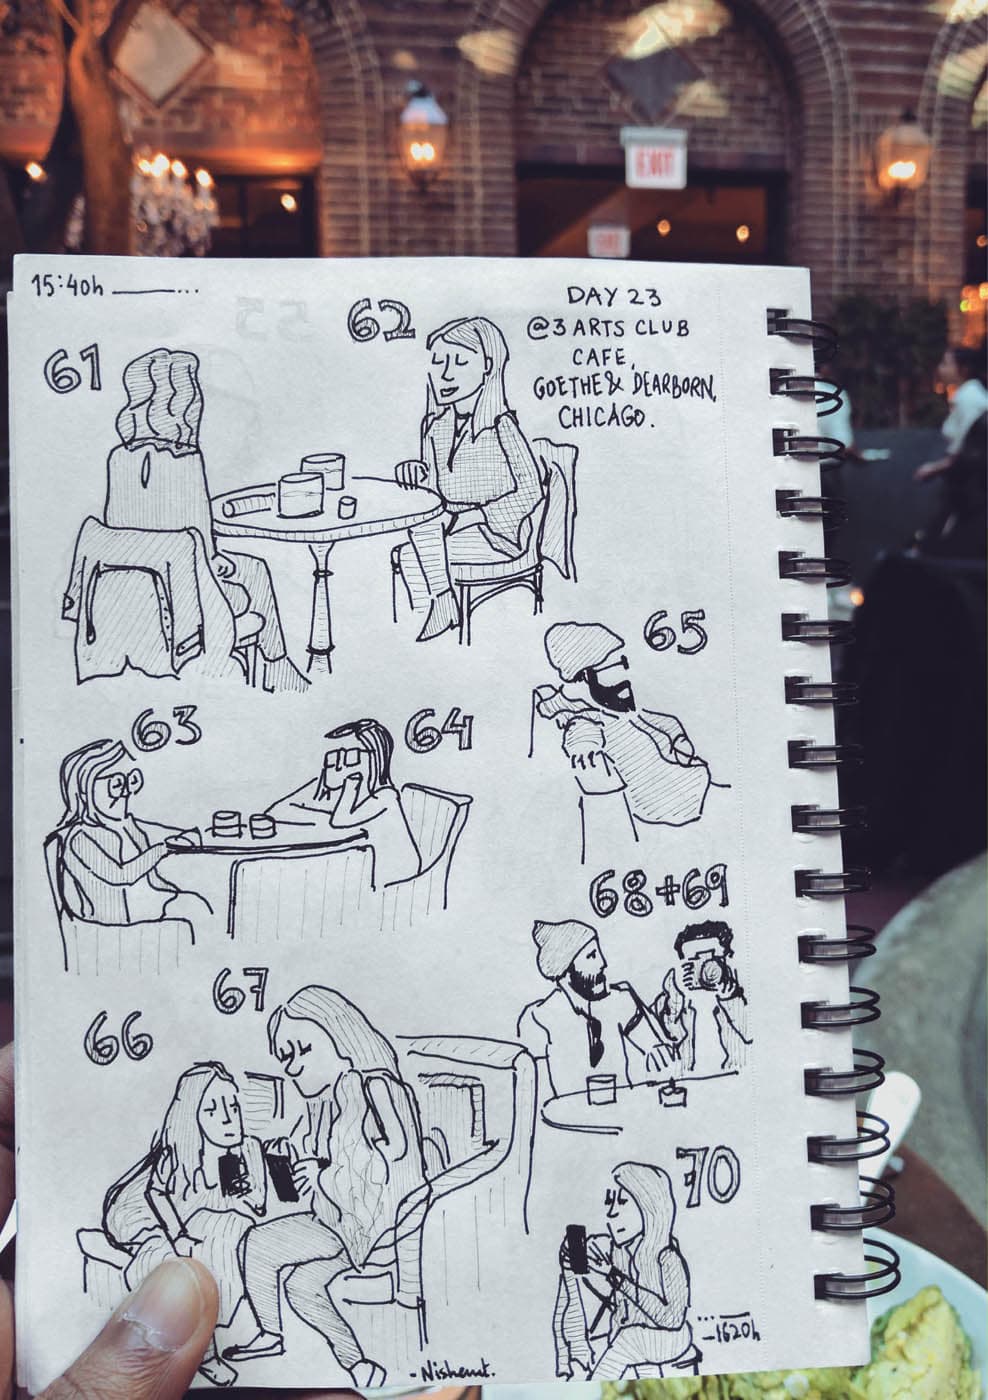 EXIT
15:40h
DAY 23
@3 ARTS CLUB
CAFE,
GOETHE & DEARBORN,
CHICAGO.
61
62
63
64
65
66
67
68+69
70
–1620h
-Nishant.